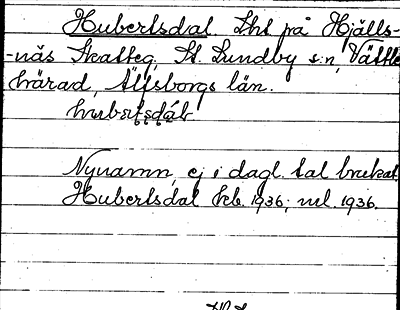 Hubertsdal. Lht på Hjälls-
-näs Skatteg, St. Lundby s:n, Vättle
härad, Älfsborgs län.
hubertsdáb
Nynamn, ej i dagl. tal brukat.
Hubertsdal kb. 1936; ml. 1936.